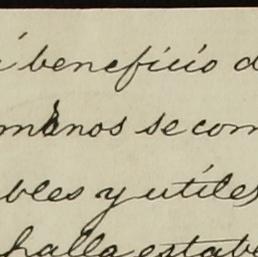 i beneficio d
menos se com
bles y utiles
halla estab